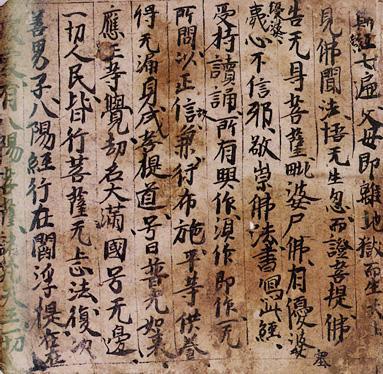 經七遍父母即離地獄而生天上
見佛聞法悟无生忍而證菩提佛
告无身菩薩毗婆尸佛有優婆塞
優婆夷心不信邪敬崇佛法書寫此經
受持讀誦所有興作須作即作一无
所問以正信故兼行布施平等供養
得无漏身成菩提道号曰普光如來
應正等覺劫名大滿國号无邊
一切人民皆行菩薩无上法復次
善男子八陽經行在閻浮提在在
有八陽菩薩天王一切